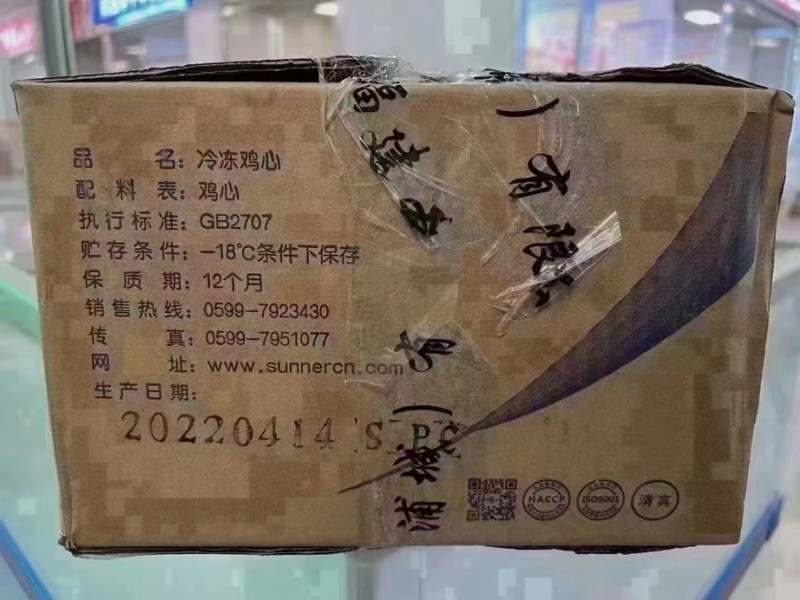 品 名：冷冻鸡心
配 料 表：鸡心
执行标准：GB2707
贮存条件：-18℃条件下保存
保 质 期：12个月
销售热线：0599-7923430
传 真：0599-7951077
网 址：www.sunnercn.com
生产日期：
20220414 S PC
福建
）有限
浦城）有
HACCP
ISO9001
清真